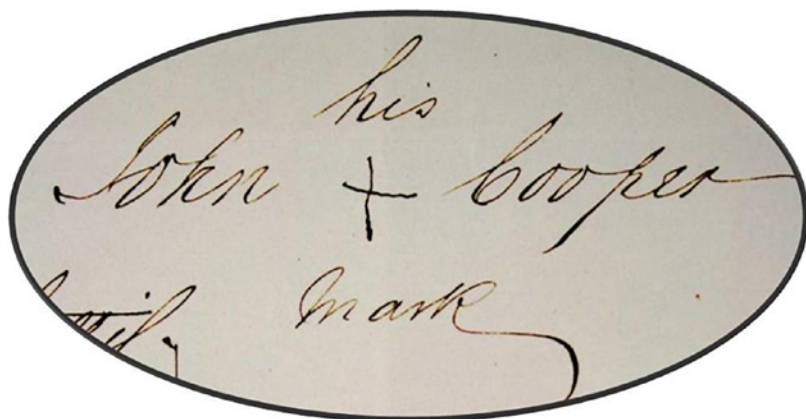 his
John + Cooper
mark